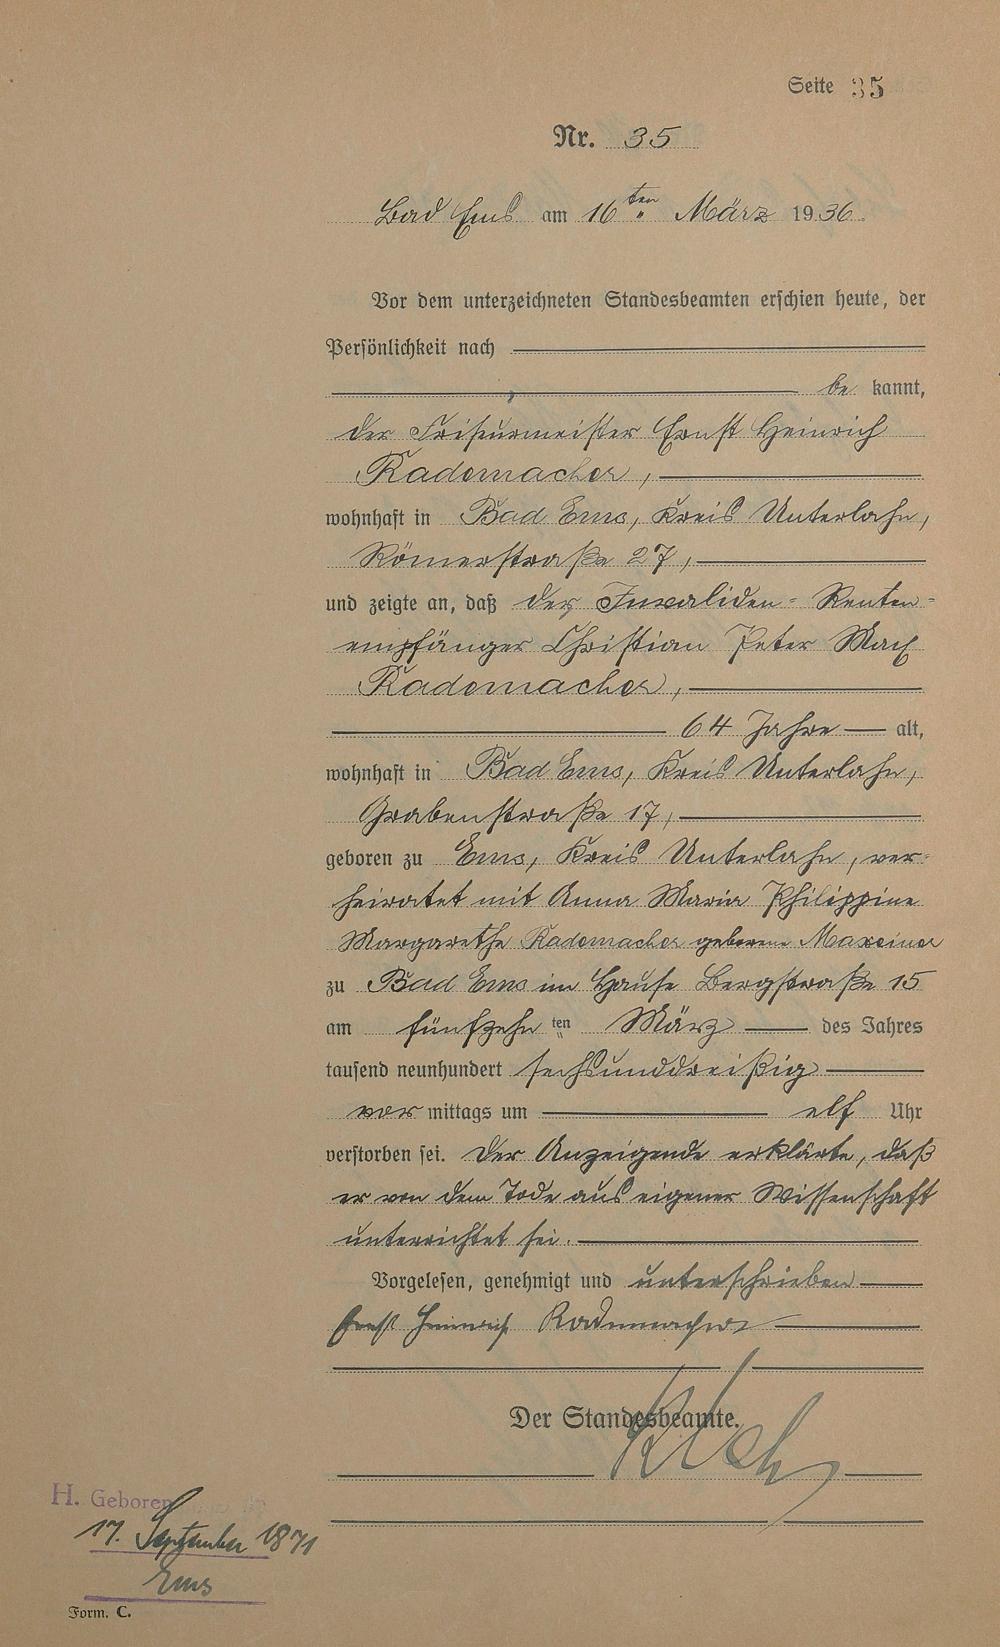 Seite 35
Nr. 35
Bad Ems am 16ten März 1936.
Vor dem unterzeichneten Standesbeamten erschien heute, der
Persönlichkeit nach
, be kannt,
der Friseurmeister Ernst Heinrich
Rademacher,
wohnhaft in Bad Ems, Kreis Unterlahn,
Römerstraße 27,
und zeigte an, daß der Invaliden-Renten-
empfänger Christian Peter Max
Rademacher,
64 Jahre alt,
wohnhaft in Bad Ems, Kreis Unterlahn,
Grabenstraße 17,
geboren zu Ems, Kreis Unterlahn, ver-
heiratet mit Anna Maria Philippine
Margarethe Rademacher geborene Maxeiner
zu Bad Ems im Hause Bergstraße 15
am fünfzehn ten März des Jahres
tausend neunhundert sechsunddreißig
vor mittags um elf Uhr
verstorben sei. Der Anzeigende erklärte, daß
er von dem Tode aus eigener Wissenschaft
unterrichtet sei.
Vorgelesen, genehmigt und unterschrieben
Ernst Heinrich Rademacher
Der Standesbeamte.
H. Geboren
17. September 1871
Ems
Form. C.